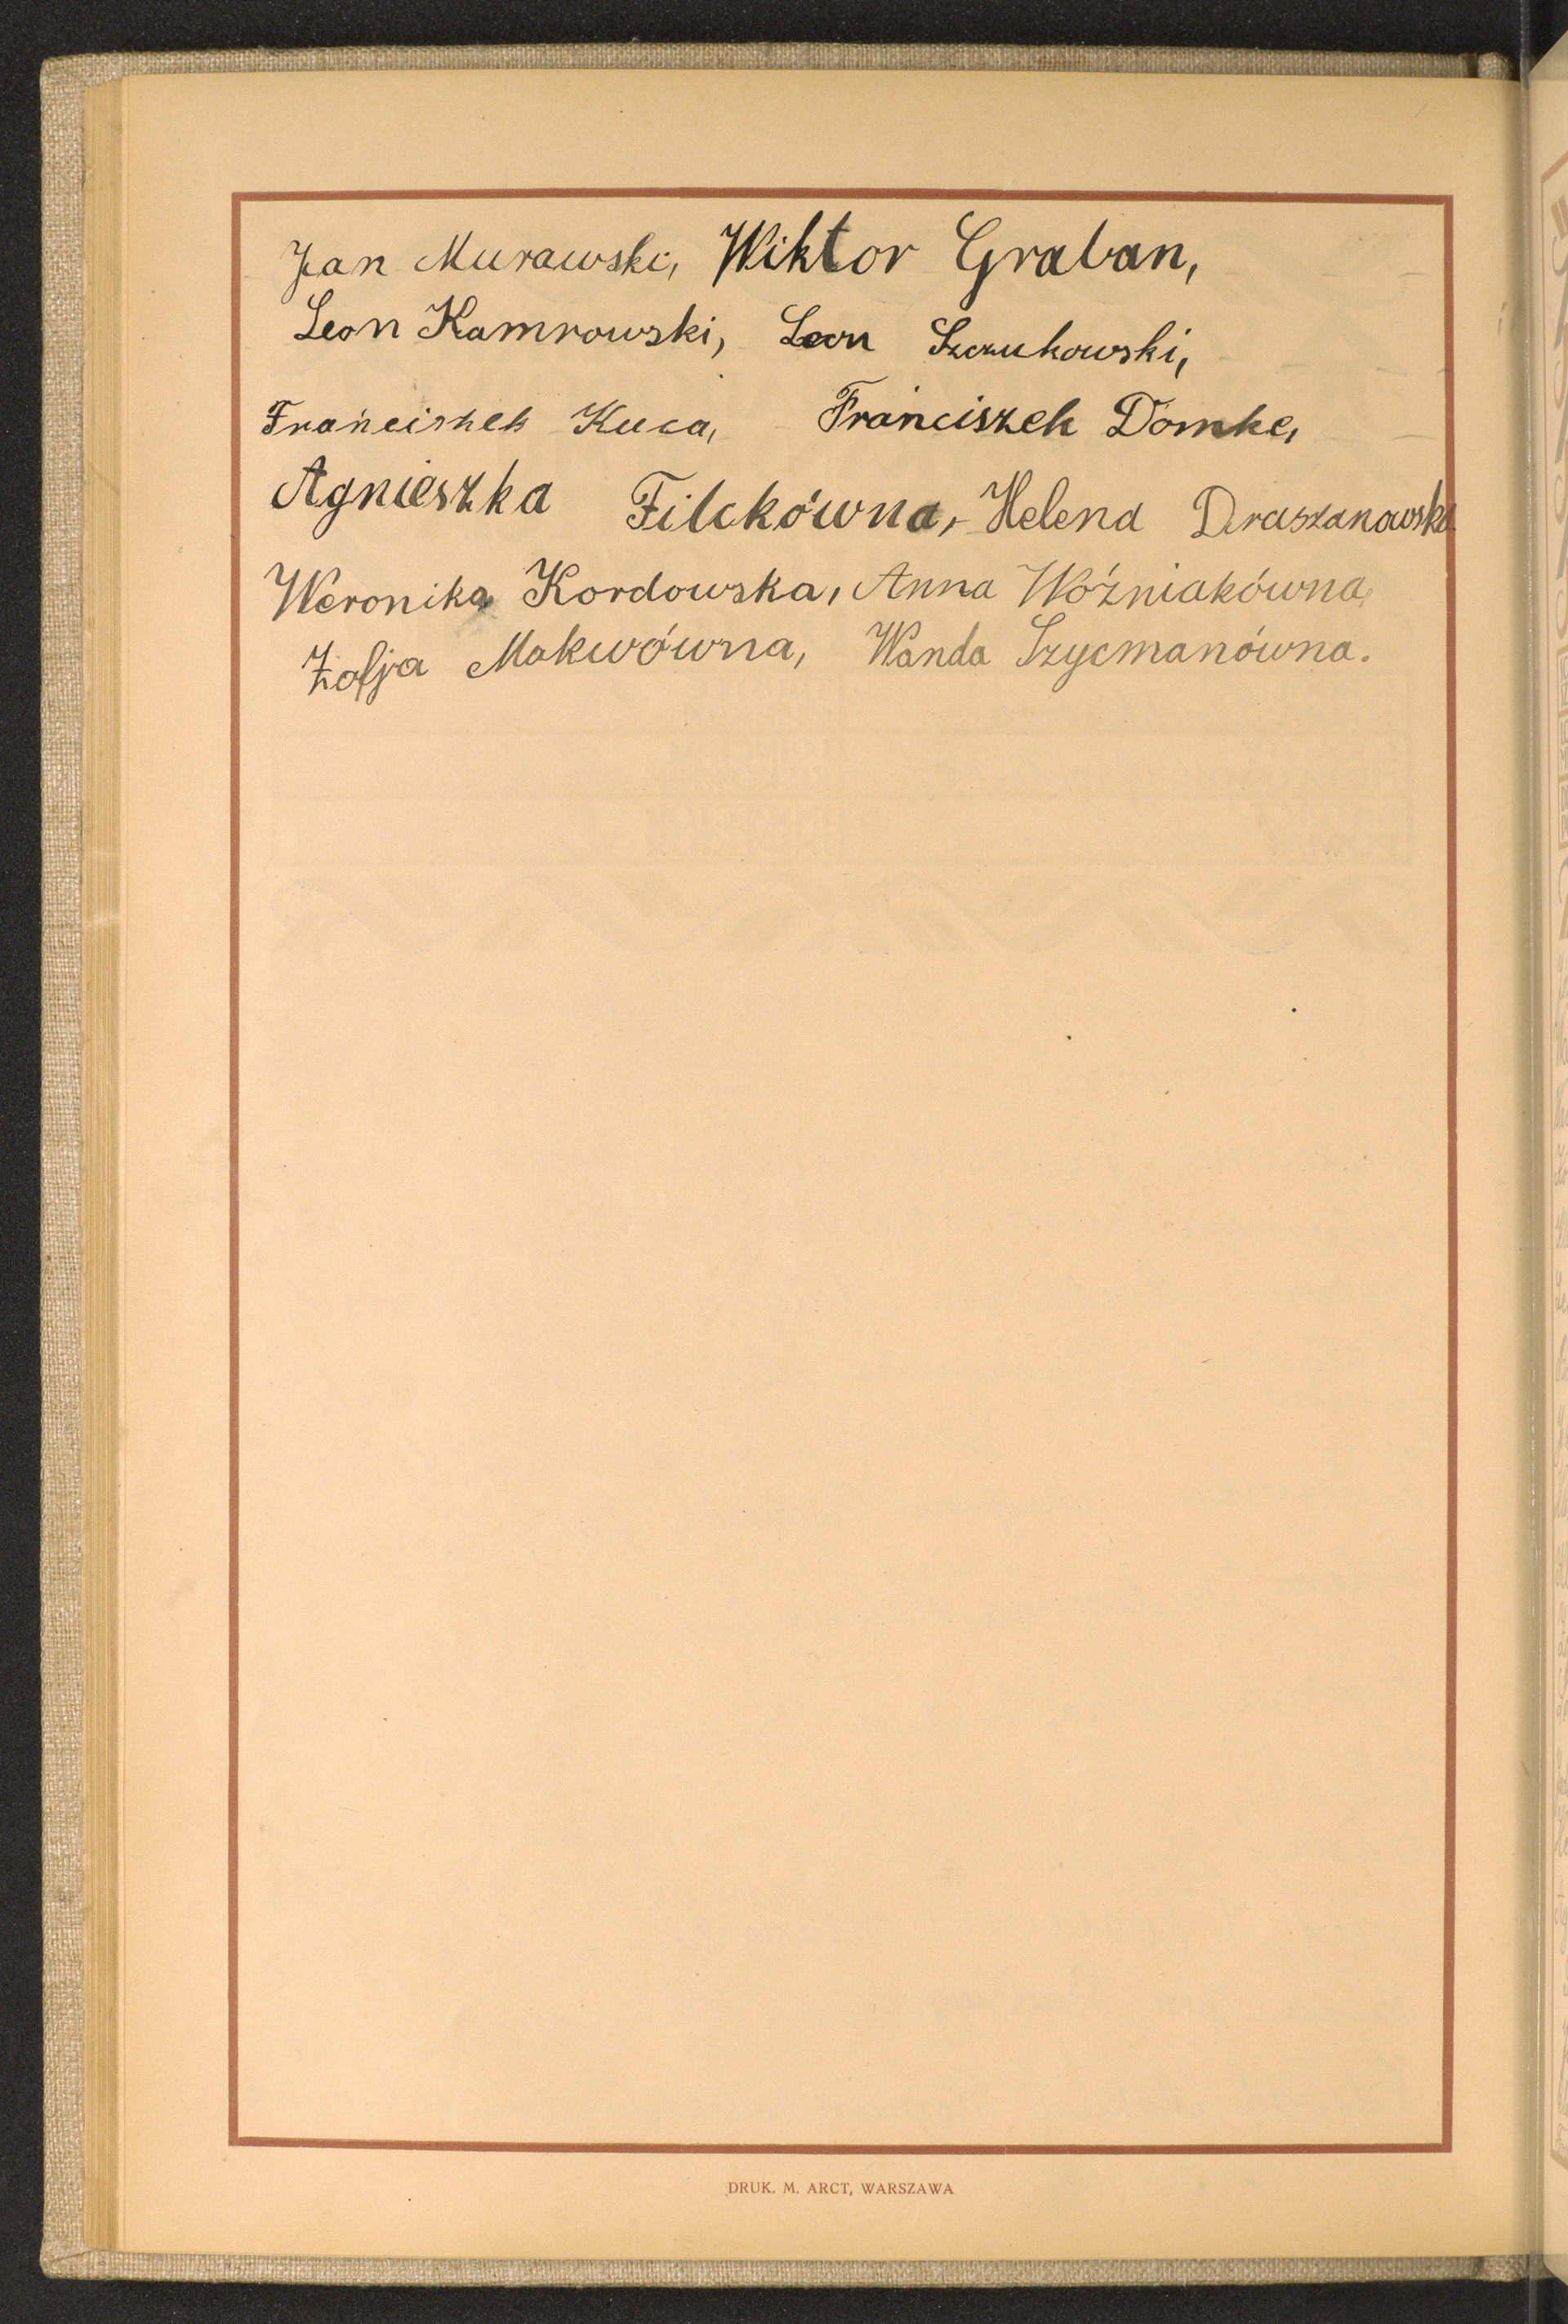 Jan Murawski, Wiktor Graban,
Leon Kamrowski, Leon Szczukowski,
Franciszek Kuca, Franciszek Domke,
Agnieszka Filckówna, Helena Draszanowska
Weronika Kordowska, Anna Woźniakówna,
Zofja Makwówna, Wanda Szycmanówna.
DRUK. M. ARCT, WARSZAWA